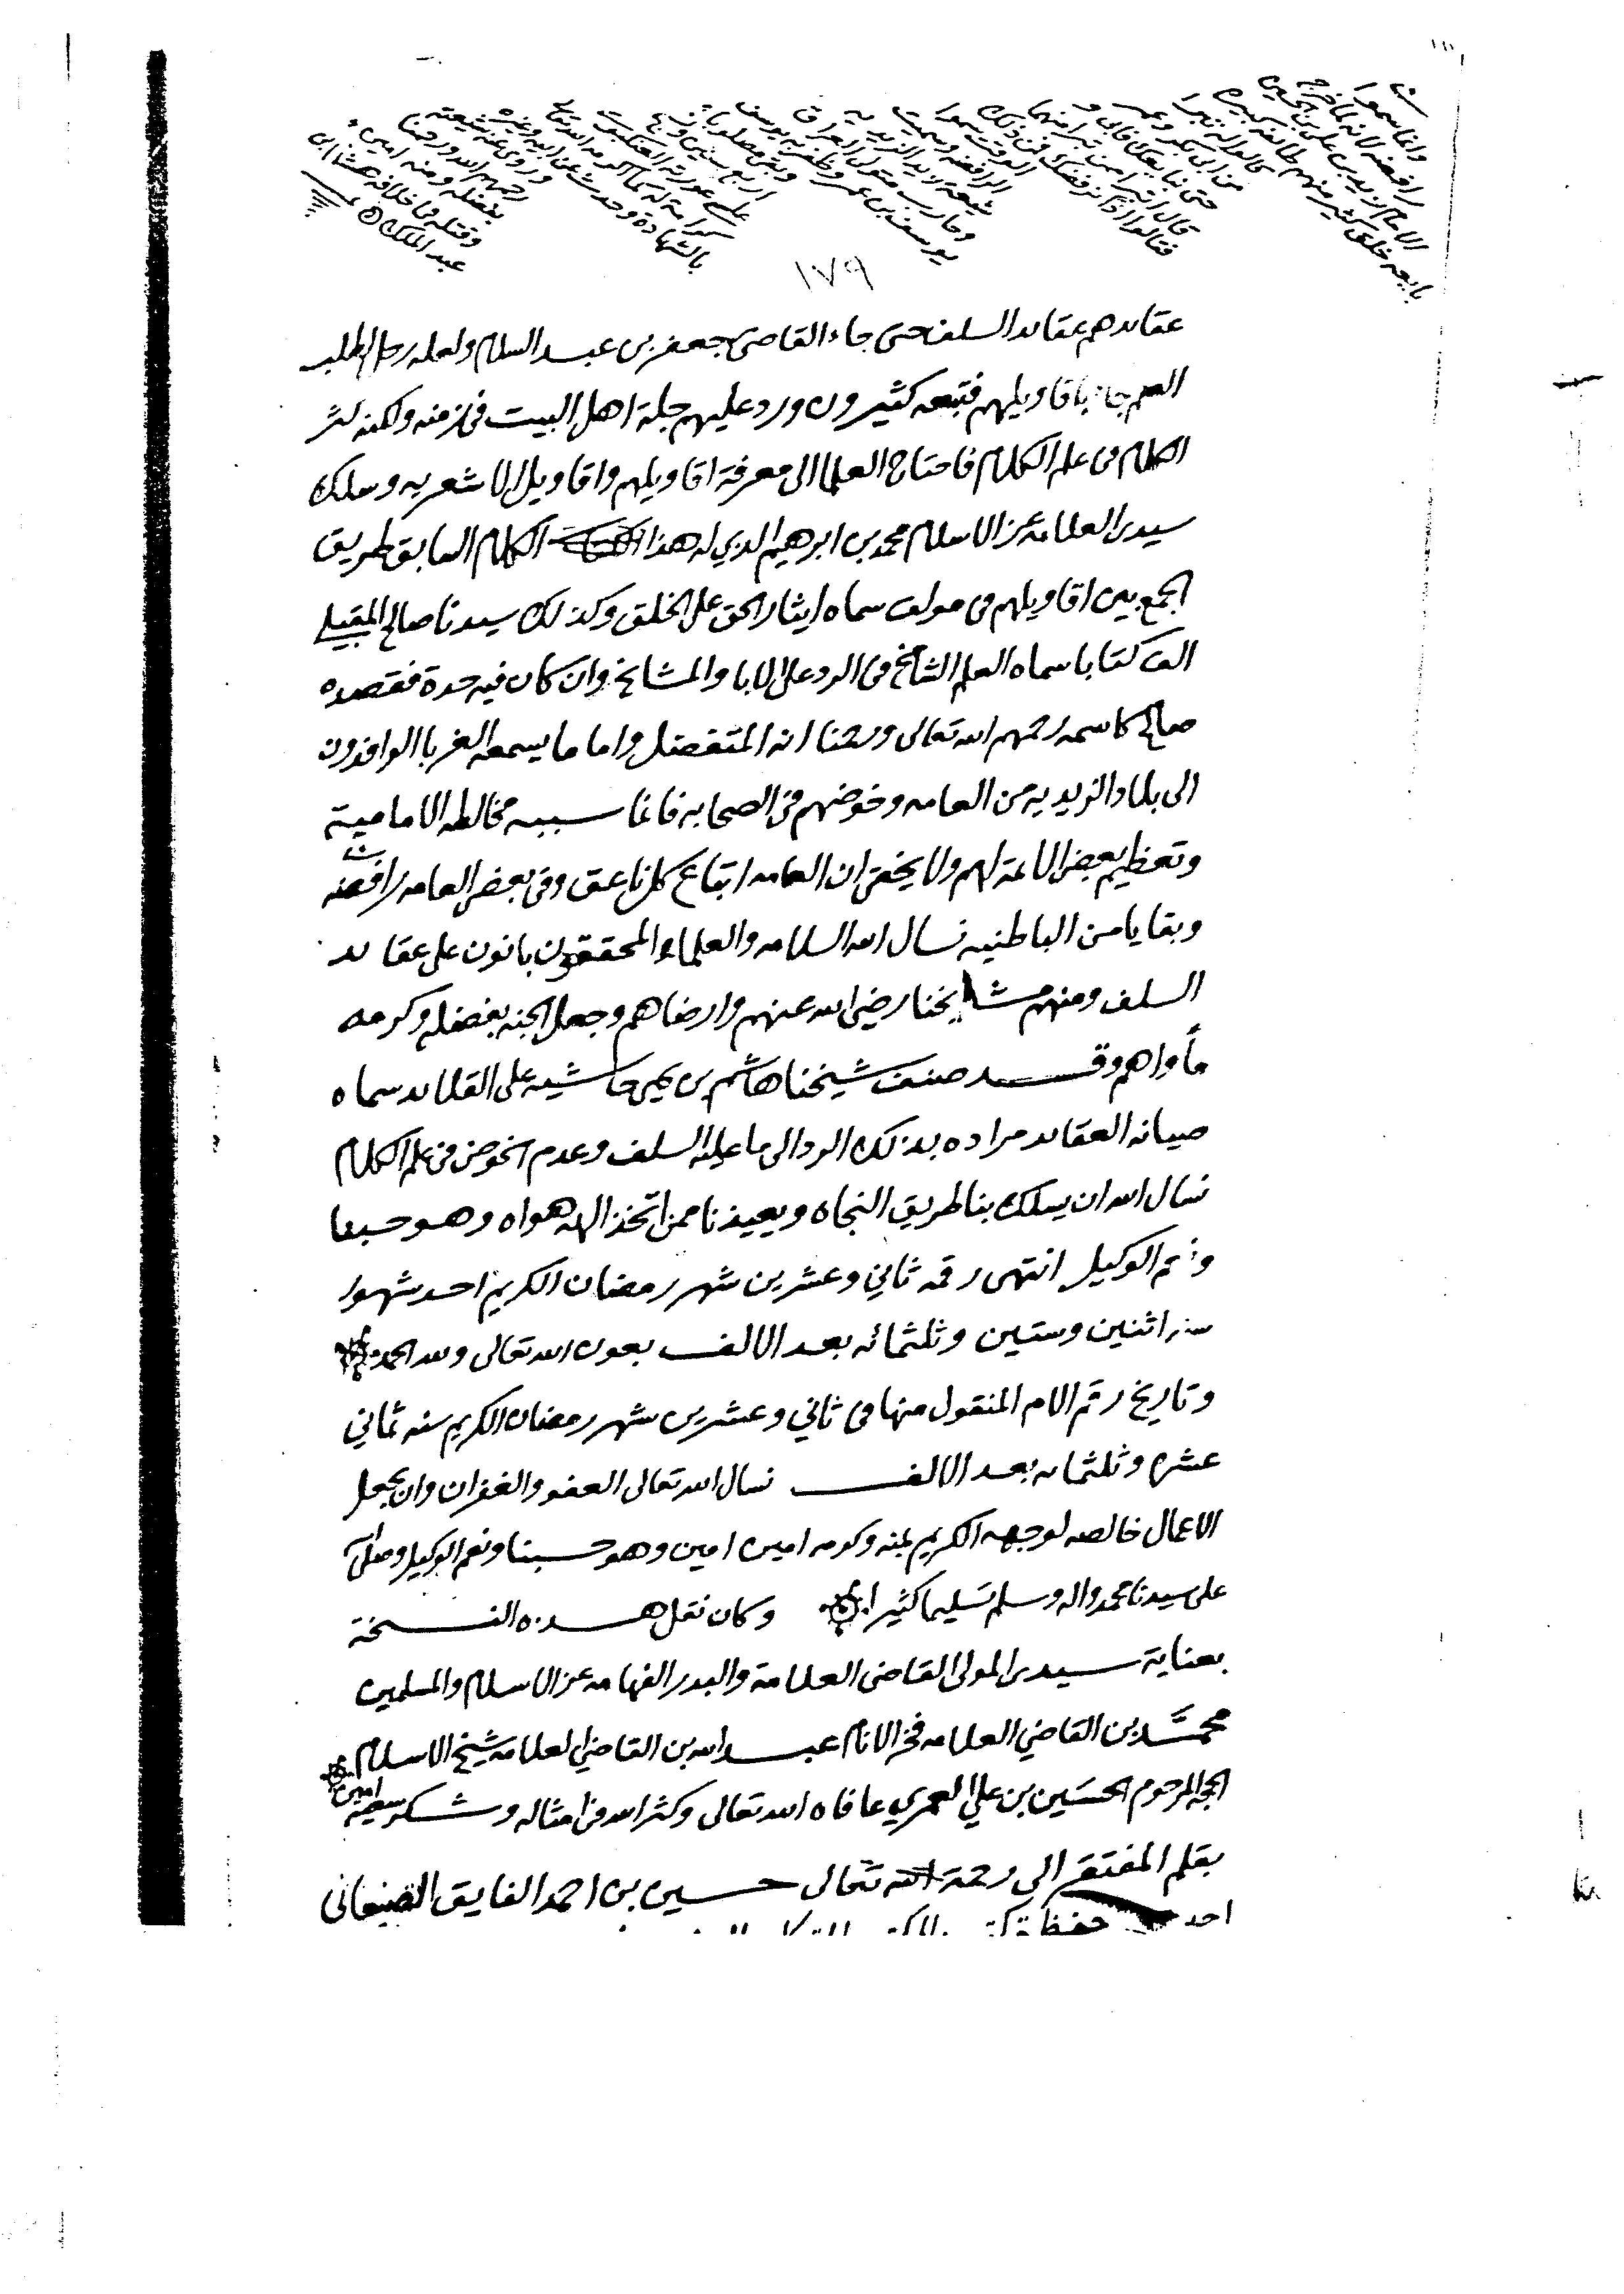 وانما سموا
رافضه لانه لما خرج
الامام زيد بن علي بن الحسين
بايعه خلق كثير منهم طائفه كبيره
قالوا له تبرا
من ابي بكر وعمر
حتى نبايعك فابى و
قال انى ابرا ممن تبرا منهما
فقالوا اذا نرفضك فمن ذلك
الوقت سموا
الرافضه وسميت
شيعة زيد الزيديه
وحارب متولى العراق
يوسف بن عمر وظفر به يوسف
وبقى مصلوبا
اربع سنين ونسج
على عورته العنكبوت
كرامة له كما اكرمه الله تعالى
بالشهادة وحدث عن ابيه وغيره
وروى عنه شيعته
رحمهم الله ورحمنا
بفضله ومنه امين
وقتله فى خلافة هشام بن
عبد الملك
١٧٩
عقايدهم عقايد السلف حتى جاء القاضى جعفر بن عبد السلام ولعله رحل لطلب
العلم جاء باقاويلهم فتبعه كثيرون ورد عليهم جلة اهل البيت فى زمنه ولكنه كثر
الكلام فى علم الكلام فاحتاج العلما الى معرفة اقاويلهم واقاويل الاشعريه وسلك
سيدى العلامه عز الاسلام محمد بن ابرهيم الذي له هذا الكلام السابق طريق
الجمع بين اقاويلهم فى مولف سماه ايثار الحق على الخلق وكذلك سيدنا صالح المقبلي
الف كتابا سماه العلم الشامخ فى الرد على الابا والمشايخ وان كان فيه حدة فقصده
صالح كاسمه رحمهم الله تعالى ورحمنا انه المتفضل واما ما يسمعه الغربا الوافدون
الى بلاد الزيديه من العامه وخوضهم فى الصحابه فانما سببه مخالطه الامامية
وتعظيم بعض الائمة لهم ولا يخفى ان العامه اتباع كل ناعق وفى بعض العامه رافضه
وبقايا من الباطنيه نسال الله السلامه والعلماء المحققون باقون على عقايد
السلف ومنهم مشايخنا رضي الله عنهم وارضاهم وجعل الجنه بفضله وكرمه
مأواهم وقد صنف شيخنا هاشم بن يحيى حاشيه على القلايد سماه
صيانه العقايد مراده بذلك الرد الى ما عليه السلف وعدم الخوض فى علم الكلام
نسال الله ان يسلك بنا طريق النجاه ويعيذنا ممن اتخذ الهه هواه وهو حسبنا
ونعم الوكيل انتهى رقمه ثاني وعشرين شهر رمضان الكريم احد شهور
سنه اثنين وستين وثلثمائه بعد الالف بعون الله تعالى ولله الحمد
وتاريخ رقم الام المنقول منها فى ثاني وعشرين شهر رمضان الكريم سنه ثماني
عشره وثلثمايه بعد الالف نسال الله تعالى العفو والغفران وان يجعل
الاعمال خالصه لوجهه الكريم بمنه وكرمه امين امين وهو حسبنا ونعم الوكيل وصلى الله
على سيدنا محمد واله وسلم تسليما كثيرا وكان نقل هذه النسخة
بعناية سيدى المولى القاضى العلامة والبدر الفهامه عز الاسلام والمسلمين
محمد بن القاضي العلامه فخر الانام عبد الله بن القاضي العلامه شيخ الاسلام
الحجه المرحوم الحسين بن علي العمري عافاه الله تعالى وكثر الله من امثاله وشكر سعيه امين
بقلم المفتقر الى رحمة الله تعالى حسين بن احمد الفايق الصنعانى
احد حفظة